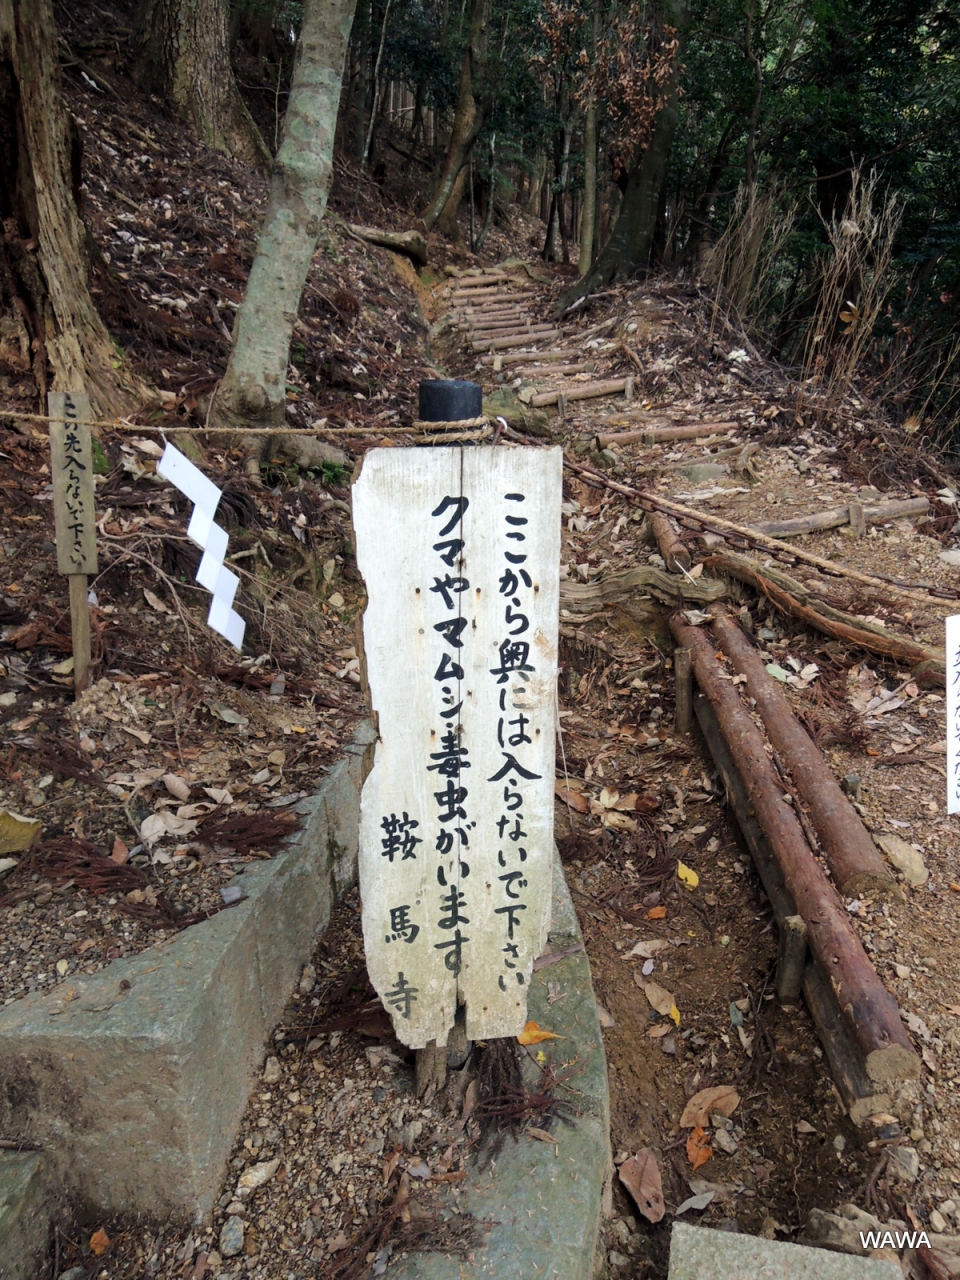 ここから奥には入らないで下さい
クマやマムシ・毒虫がいます
鞍馬寺
この先入らないで下さい
WAWA